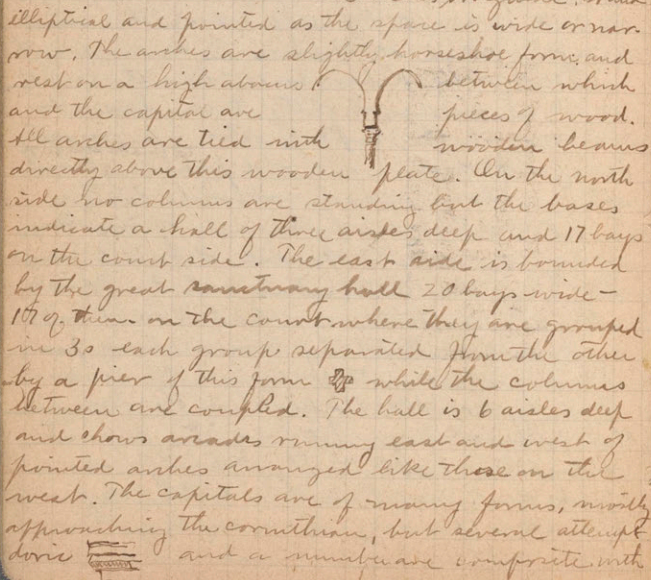 elliptical and pointed as the space is wide or nar-
row. The arches are slightly horseshoe form, and
rest on a high abacus between which
and the capital are pieces of wood.
All arches are tied with wooden beams
directly above this wooden plate. On the north
side no columns are standing but the bases
indicate a hall of three aisles deep and 17 bays
on the court side. The east side is bounded
by the great sanctuary hall 20 bays wide -
17 of them on the court where they are grouped
in 3s each group separated from the other
by a pier of this form while the columns
between are coupled. The hall is 6 aisles deep
and shows arcades running east and west of
pointed arches arranged like those on the
west. The capitals are of many forms, mostly
approaching the corinthian, but several attempt
doric and a number are composite with